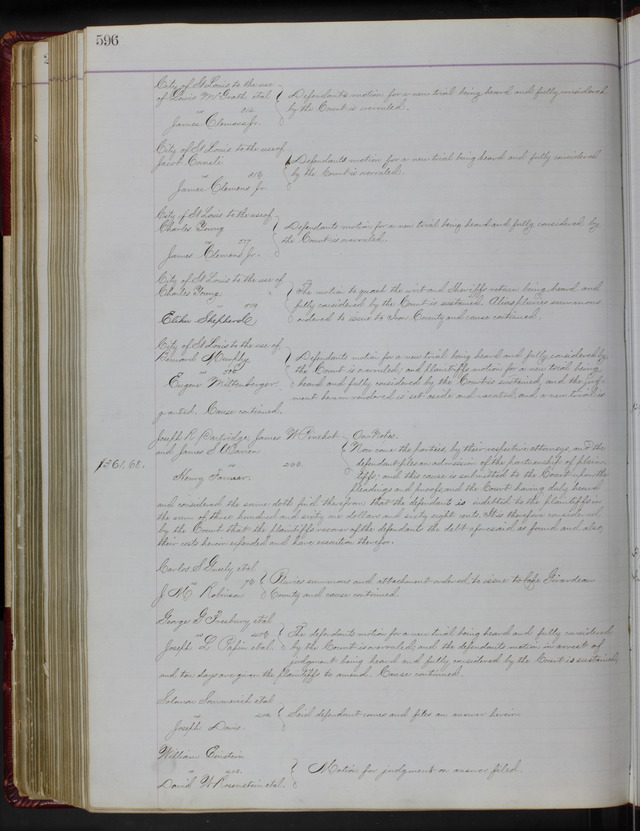 596
City of St Louis to the use
of Louis McGrath et al } Defendants motion for a new trial being heard and fully considered
by the Court is overruled.
James Clemens Jr.
City of St Louis to the use of
Jacob } Defendants motion for a new trial being heard and fully considered
by the Court is overruled.
James Clemens Jr.
City of St Louis to the use of
Charles Young } Defendants motion for a new trial being heard and fully considered by
the Court is overruled.
James Clemens Jr.
City of St Louis to the use of
Charles Young } The motion to quash the writ and Sheriffs return being heard and
fully considered by the Court is sustained. Alias pluries summons
Elihu Shepherd ordered to issue to Iron County and cause continued.
City of St Louis to the use of
Bernard Murphy } Defendants motion for a new trial being heard and fully considered by
the Court is overruled, and plaintiffs motion for a new trial being
Eugene Miltenberger. heard and fully considered by the Court is sustained, and the judg-
ment herein rendered is set aside and vacated, and a new trial is
granted. Cause continued.
Joseph R Partridge, James W
and James S Warren } Now come the parties, by their respective attorneys, and the
$361.68. defendant files an admission of the partnership of plain-
Henry tiffs: and this cause is submitted to the Court upon the
pleadings and proofs, and the Court having duly heard
and considered the same doth find therefrom that the defendant is indebted to the plaintiffs in
the sum of three hundred and sixty one dollars and sixty eight cents. It is therefore considered
by the Court that the plaintiffs recover of the defendant the debt aforesaid as found and also
their costs herein expended and have execution therefor.
Carlos S Greely et al
} Pluries summons and attachment ordered to issue to Cape Girardeau
J. M. Robinson County and cause continued.
George G Presbury et al
} The defendants motion for a new trial being heard and fully considered
Joseph L Papin et al. by the Court is overruled, and the defendants motion in arrest of
judgment being heard and fully considered by the Court is sustained,
and ten days are given the plaintiffs to amend. Cause continued.
Solomon et al
} Said defendant comes and files an answer herein
Joseph Davis.
William Einstein
} Motion for judgment on answer filed.
David W Rosenstein et al.